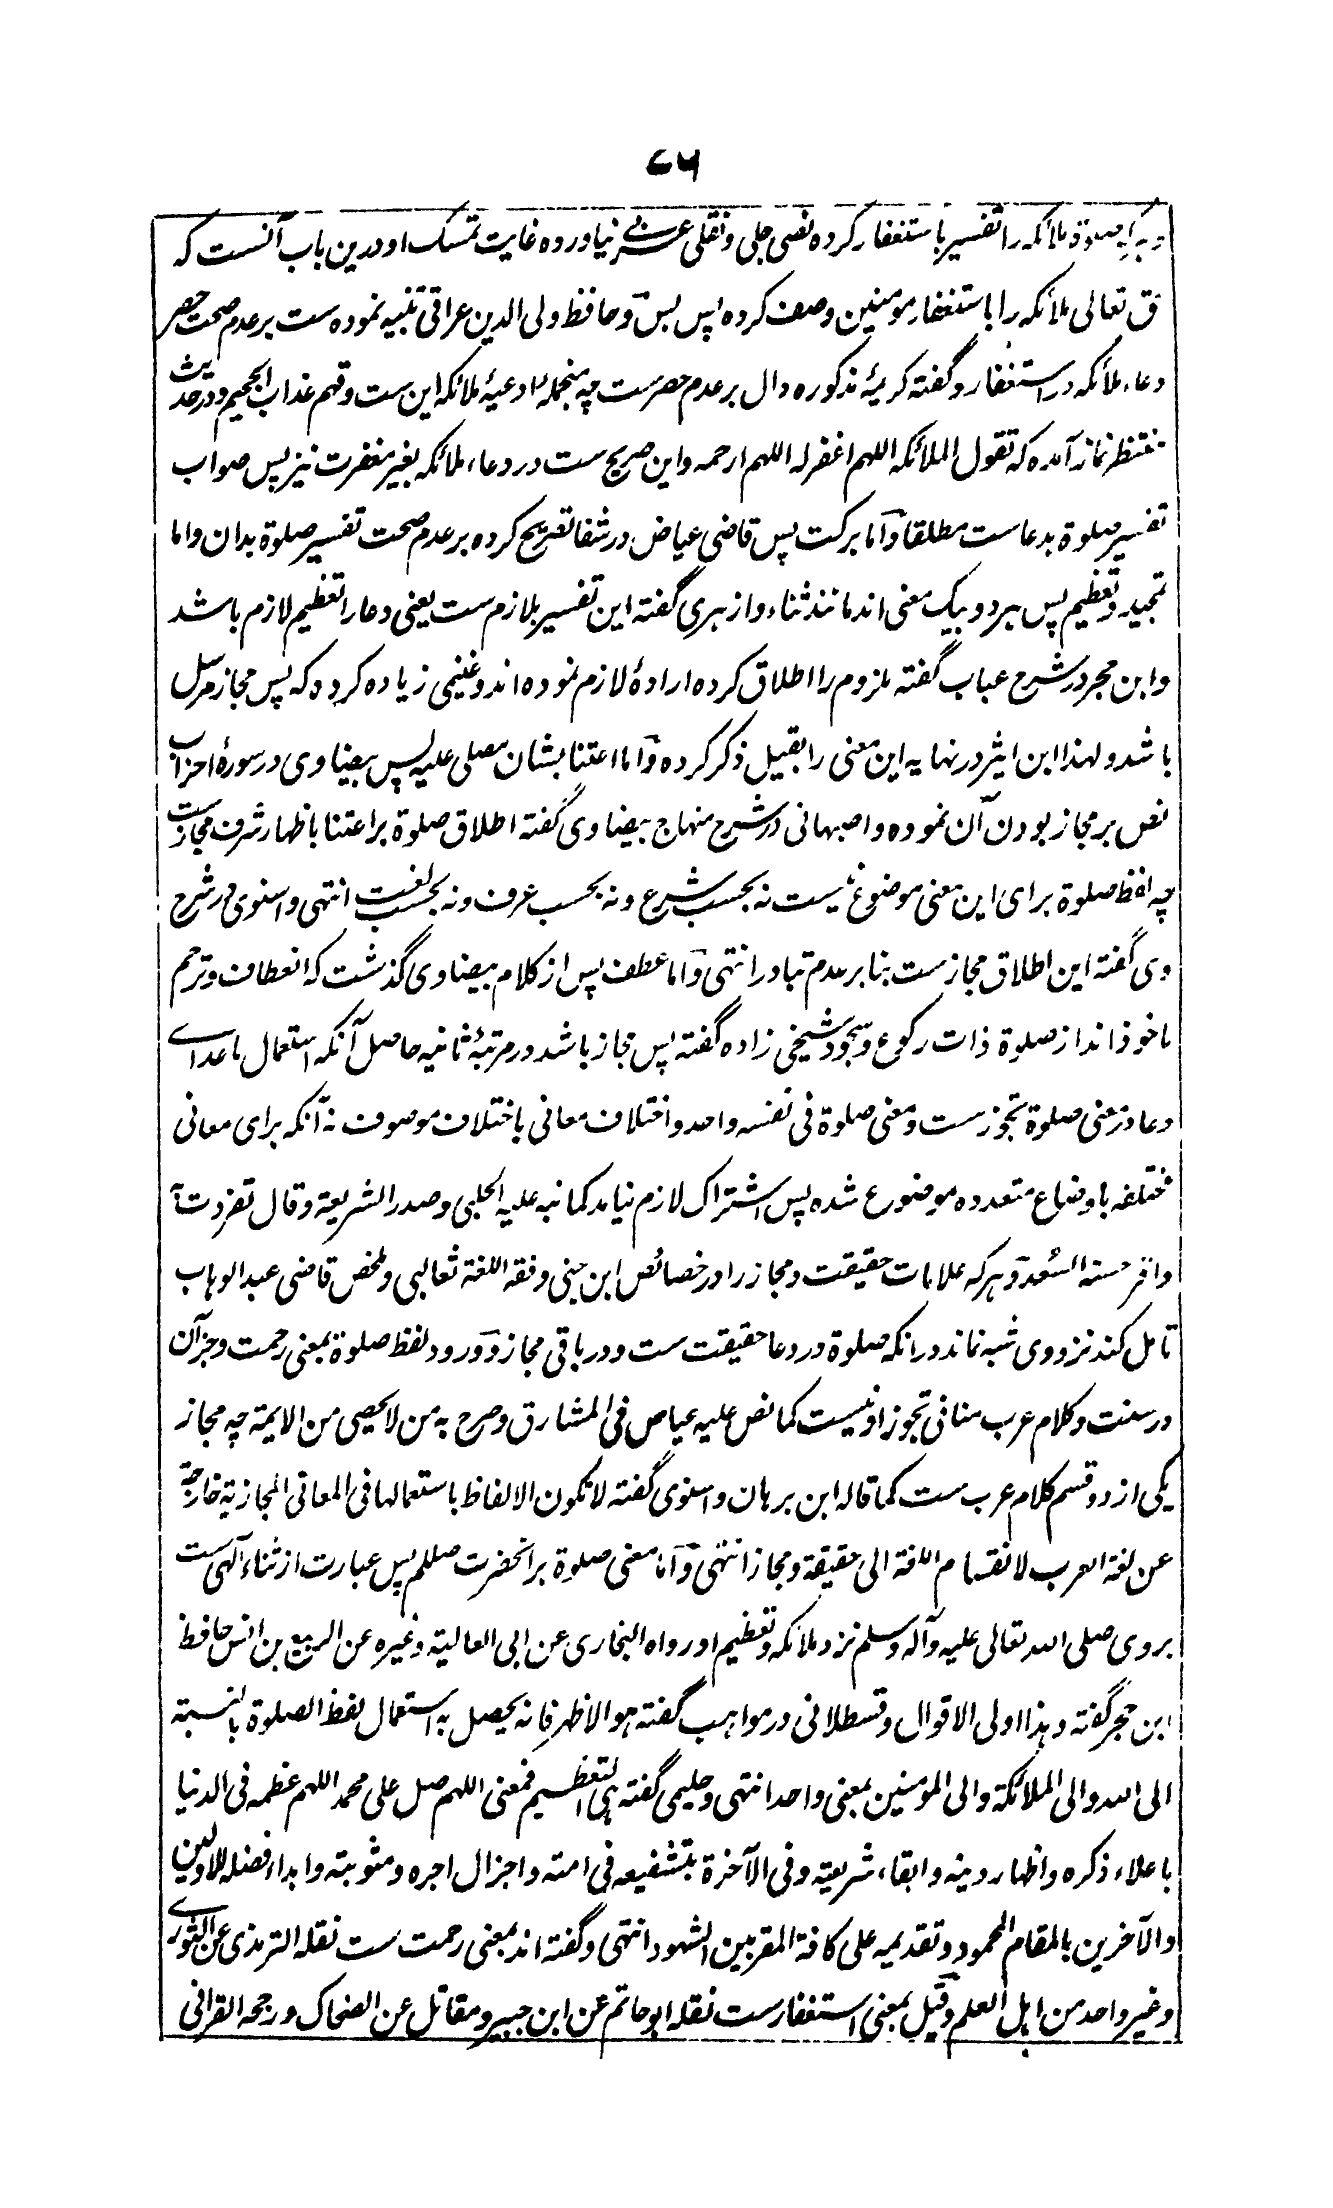 ۷۶
و هرکه صلوة ملائکه را تفسیر باستغفار کرده نصی جلی و نقلی عربی نیاورده غایت تمسک او درین باب آنست که
حق تعالی ملائکه را باستغفار مومنین وصف کرده پس بس و حافظ ولی الدین عراقی تنبیه نموده ست بر عدم صحت حصر
دعاء ملائکه در استغفار و گفته کریمهٔ مذکوره دال بر عدم حصرست چه منجملهٔ ادعیهٔ ملائکه این ست وقهم عذاب الجحیم و در حدیث
منتظر نماز آمده که تقول الملائکه اللهم اغفر له اللهم ارحمه و این صریح ست در دعاء ملائکه بغیر مغفرت نیز پس صواب
تفسیر صلوة بدعاست مطلقا و اما برکت پس قاضی عیاض در شفا تصریح کرده بر عدم صحت تفسیر صلوة بدان و اما
تمجید و تعظیم پس هر دو بیک معنی اند مانند ثناء و ازهری گفته این تفسیر بلازم ست یعنی دعا را تعظیم لازم باشد
و ابن حجر در شرح عباب گفته ملزوم را اطلاق کرده ارادهٔ لازم نموده اند و غنیمی زیاده کرده که پس مجاز مرسل
باشد و لهذا ابن اثیر در نهایه این معنی را بقیل ذکر کرده و اما اعتنا بشان مصلی علیه پس بیضاوی در سورهٔ احزاب
نص بر مجاز بودن آن نموده و اصبهانی در شرح منهاج بیضاوی گفته اطلاق صلوة بر اعتنا باظهار شرف مجازست
چه لفظ صلوة برای این معنی موضوع نیست نه بحسب شرع و نه بحسب عرف و نه بحسب لغت انتهی و اسنوی در شرح
وی گفته این اطلاق مجازست بنا بر عدم تبادر انتهی و اما عطف پس از کلام بیضاوی گذشت که انعطاف و ترحم
ماخوذ اند از صلوة ذات رکوع و سجود شیخی زاده گفته پس مجاز باشد در مرتبهٔ ثانیه حاصل آنکه استعمال ماعدای
دعا در معنی صلوة تجوزست و معنی صلوة فی نفسه واحد و اختلاف معانی باختلاف موصوف نه آنکه برای معانی
مختلفه باوضاع متعدده موضوع شده پس اشتراک لازم نیاید کما نبه علیه الحلبی و صدر الشریعة و قال تفردت
السعد و هرکه علامات حقیقت و مجاز را در خصائص ابن جنی و فقه اللغة ثعالبی و ملخص قاضی عبد الوهاب
تامل کند نزد وی شبه نماند در انکه صلوة در دعا حقیقت ست و در باقی مجاز و ورود لفظ صلوة بمعنی رحمت و جز آن
در سنت و کلام عرب منافی تجوز او نیست کما نص علیه عیاض فی المشارق و صرح به من لا یحصی من الایمة چه مجاز
یکی از دو قسم کلام عرب ست کما قاله ابن برهان و اسنوی گفته لا تکون الالفاظ باستعمالها فی المعانی المجازیة خارجة
عن لغة العرب لانقسام اللغة الی حقیقة و مجاز انتهی و اما معنی صلوة بر آنحضرت صللم پس عبارت از ثناء الٓهی ست
بر وی صلی الله تعالی علیه و آله و سلم نزد ملائکه و تعظیم او رواه البخاری عن ابی العالیة و غیره عن الربیع بن انس حافظ
ابن حجر گفته و هذا اولی الاقوال و قسطلانی در مواهب گفته هو الاظهر فانه یحصل به استعمال لفظ الصلوة بالنسبة
الی الله و الی الملائکة و الی المؤمنین بمعنی واحد انتهی و حلیمی گفته هی التعظیم فمعنی اللهم صل علی محمد اللهم عظمه فی الدنیا
باعلاء ذکره و اظهار دینه و ابقاء شریعته و فی الآخرة بتشفیعه فی امته و اجزال اجره و مثوبته و ابداء فضله للاولین
و الآخرین بالمقام المحمود و تقدیمه علی کافة المقربین الشهود انتهی و گفته اند بمعنی رحمت ست نقله الترمذی عن الثوری
و غیر واحد من اهل العلم و قیل بمعنی استغفارست نقله ابو حاتم عن ابن جبیر و مقاتل عن الضحاک و رجحه القرافی